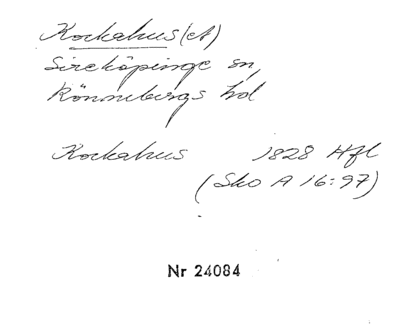 Kockahus(et)
Sireköpinge sn,
Rönnebergs hd
Kockahus 1828 Hfl
(Sko A 16:97)
Nr 24084